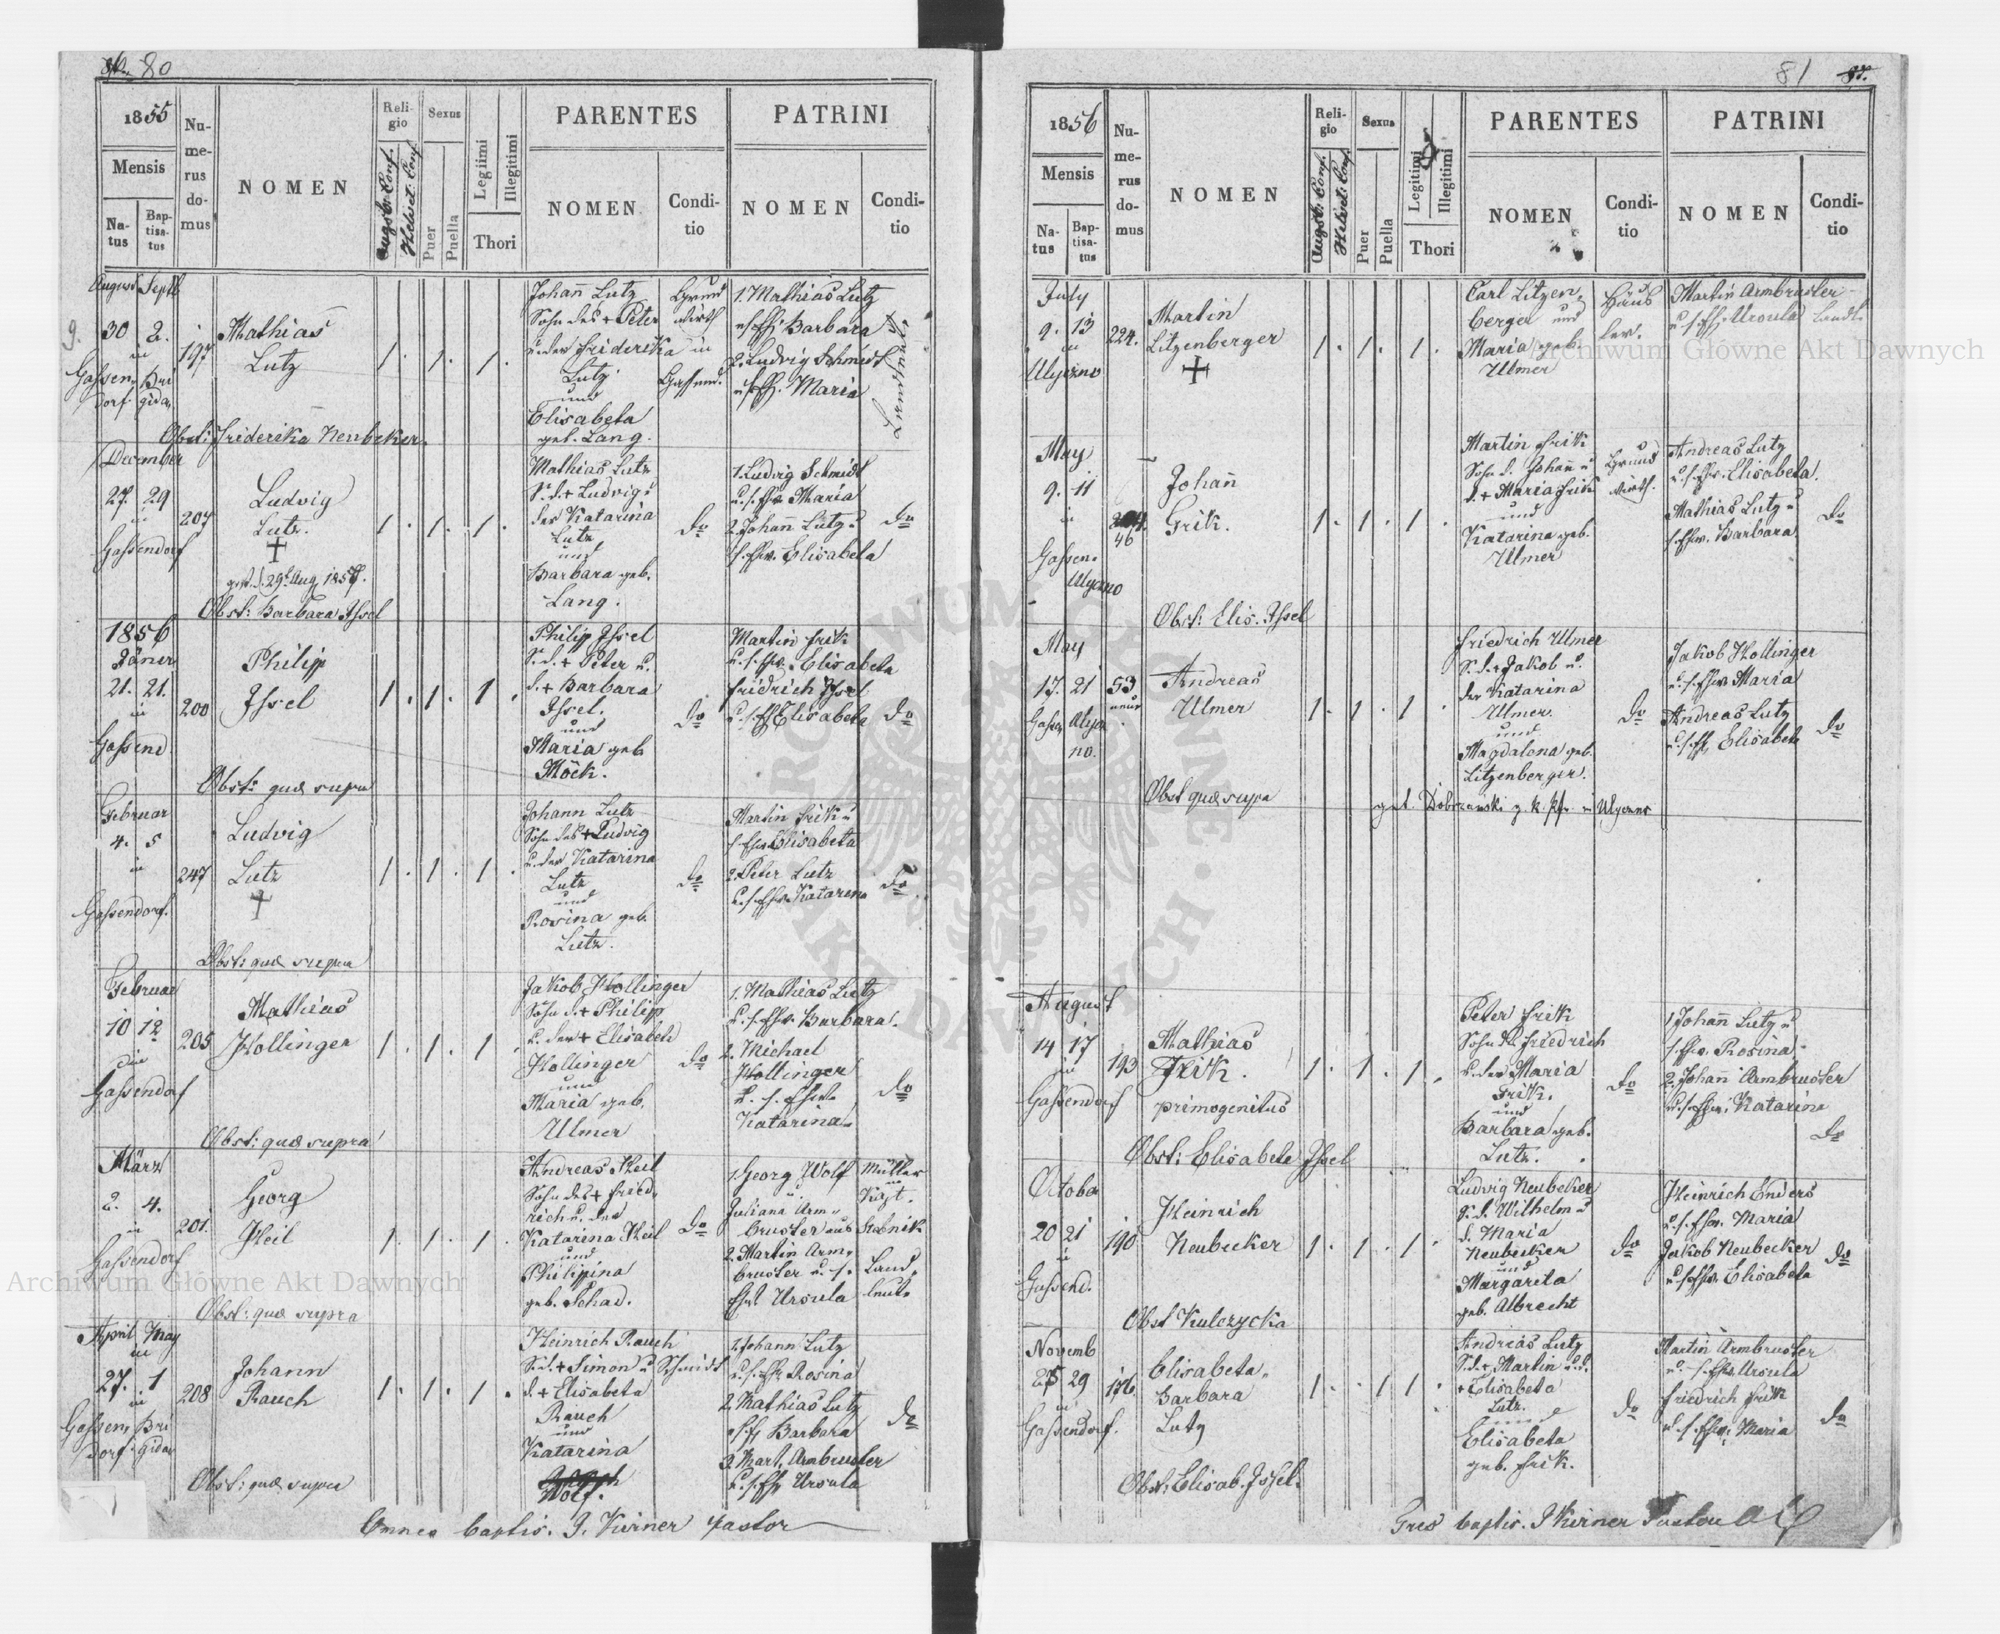 80
1855
Numerus domus
NOMEN
Religio
Augsb. Conf.
Helvet. Conf.
Sexus
Puer
Puella
Legitimi
Illegitimi
Thori
PARENTES
NOMEN
Conditio
PATRINI
NOMEN
Conditio
Mensis
Natus
Baptisatus
August Septb
30 2.
in
Gassen, Bri
dorf gida
197
Mathias
Lutz
1. 1. 1.
Johañ Lutz
Sohn des + Peter
u. der Friderika
Lutz
und
Elisabeta
geb. Lang.
Grund
wirth
in
Gassend.
1. Mathias Lutz
Barbara
2. Ludwig Schmidt
Maria
Landleute
Obst: Friderika Neubeker.
December
27. 29
in
Gassendorf
207
Ludvig
Lutz.
gest. d. 29t Aug 1857.
1. 1. 1.
Mathias Lutz
S. d. + Ludvig u
der Katarina
Lutz
und
Barbara geb.
Lang.
do
1. Ludvig Schmidt
u. s. Ehw. Maria
2. Johañ Lutz u
s. Ehw. Elisabeta
do
Obst: Barbara Issel
1856
Jäner
21. 21.
in
Gassend
200
Philip
Issel
1. 1. 1.
Philip Issel
S. d. + Peter u.
d. + Barbara
Issel.
und
Maria geb
Möck.
do
Martin Frik
u. s. Ehw. Elisabeta
Fridrich Issel
u. s. Eh Elisabeta
do
Obst: quæ supra
Februar
4. 5
in
Gassendorf.
247
Ludvig
Lutz
1. 1. 1.
Johann Lutz
Sohn des + Ludvig
u. der Katarina
Lutz
und
Rosina geb.
Lutz.
do
Martin Frik u
s. Ehw Elisabeta
2. Peter Lutz
u. s. Ehw Katarena
do
Obst: quæ supra
Februar
10 12
in
Gassendorf
205
Mathias
Hollinger
1. 1. 1
Jakob Hollinger
Sohn d. + Philip
u. der + Elisabeth
Hollinger
und
Maria geb.
Ulmer
do
1. Mathias Lutz
u. s. Ehw. Barbara.
2. Michael
Hollinger
u. s. Ehw.
Katarina
do
Obst: quæ supra
März
2. 4.
in
Gassendorf
201.
Georg
Heil
1. 1. 1.
Andreas Heil
Sohn des + Fried,
rich u. der
Katarina Heil
und
Philipina
geb. Schad.
do
1. Georg Wolf
u.
Juliana Arm,
bruster aus
2. Martin Arm,
bruster u. s.
Ehw Ursula
Müller
Stebnik
Land,
leute
Obst: quæ supra
April May
27. 1
in
Gassen, Bri
dorf. gidau
208
Johann
Rauch
1. 1. 1.
Heinrich Rauch
S. d. + Simon u Schmidt
d. + Elisabeta
Rauch
und
Katarina
Wolf.
1. Johann Lutz
u. s. Eh. Rosina
2. Mathias Lutz
Barbara
3. Mart. Armbruster
u. s. Eh. Ursula
do
Obst: quæ supra
Omnes baptis. J. Kirner Pastor
81
1856
Numerus domus
NOMEN
Religio
Augsb. Conf.
Helvet. Conf.
Sexus
Puer
Puella
Legitimi
Illegitimi
Thori
PARENTES
NOMEN
Conditio
PATRINI
NOMEN
Conditio
Mensis
Natus
Baptisatus
July
9. 13
in
Ulyczno
224.
Martin
Litzenberger
1. 1. 1.
Carl Litzen,
berger und
Maria geb.
Ulmer
Häus
ler.
Martin Armbruster
u. s. Eh. Ursula
Landl.
May
9. 11
in
Gassen.
Ulyczno
46
Johañ
Frik.
1. 1. 1.
Martin Frik
Sohn d. Johañ u
d. + Maria Frik
und
Katarina geb.
Ulmer
Grund
wirth.
Andreas Lutz
u. s. Ehw. Elisabeta.
Mathias Lutz u
s. Ehw. Barbara
do
Obst: Elis. Issel
May
17. 21
Gassen, Ulycz
no.
53
neue
Andreas
Ulmer
1. 1. 1.
Friedrich Ulmer
S. d. + Jakob u.
der Katarina
Ulmer.
und
Magdalena geb.
Litzenberger.
do
Jakob Hollinger
u. s. Ehw Maria
Andreas Lutz
u. s. Eh. Elisabeta
do
Obst quæ supra
get. Dobrzanski g. k. Pfr. in Ulyczno
August
14 17
in
Gassendorf
193
Mathias
Frik.
primogenitus
1. 1. 1.
Peter Frik
Sohn d. Friedrich
u. der Maria
Frik.
und
Barbara geb.
Lutz.
do
1. Johañ Lutz u
s. Ehw. Rosina
2. Johañ Armbruster
u. s. Ehw. Katarina
do
Obst: Elisabeta Issel
October
20 21
in
Gassend.
190
Heinrich
Neubecker
1. 1. 1.
Ludvig Neubeker
S. d. Wilhelm u
d. Maria
Neubecker
und
Margareta
geb. Albrecht
do
Heinrich Enders
u. s. Ehw. Maria
Jakob Neubecker
u. s. Ehw. Elisabeta
do
Obst Kulczycka
Novemb
25 29
in
Gassendorf.
176
Elisabeta
Barbara
Lutz
1. 1 1.
Andreas Lutz
S. d. + Martin u. d.
+ Elisabeta
Lutz.
und
Elisabeta
geb. Frik.
do
Martin Armbruster
u. s. Ehw Ursula
Friedrich Frik
u. s. Ehw. Maria
do
Obst: Elisab. Issel.
Tres baptis. J Kirner Pastor
Archiwum Główne Akt Dawnych
Archiwum Główne Akt Dawnych
ARCHIWUM GŁÓWNE AKT DAWNYCH